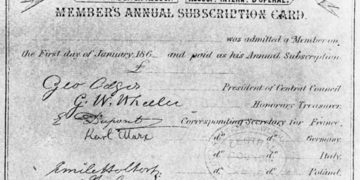 MEMBER'S ANNUAL SUBSCRIPTION CARD.
was admitted a Member on
the First day of January 186 and paid as his Annual Subscription
£
Geo Odger President of Central Council
G. W. Wheeler Honorary Treasurer
E Dupont Corresponding Secretary for France,
Karl Marx dº dº Germany
dº dº Italy,
Emile Holtorp dº dº Poland,